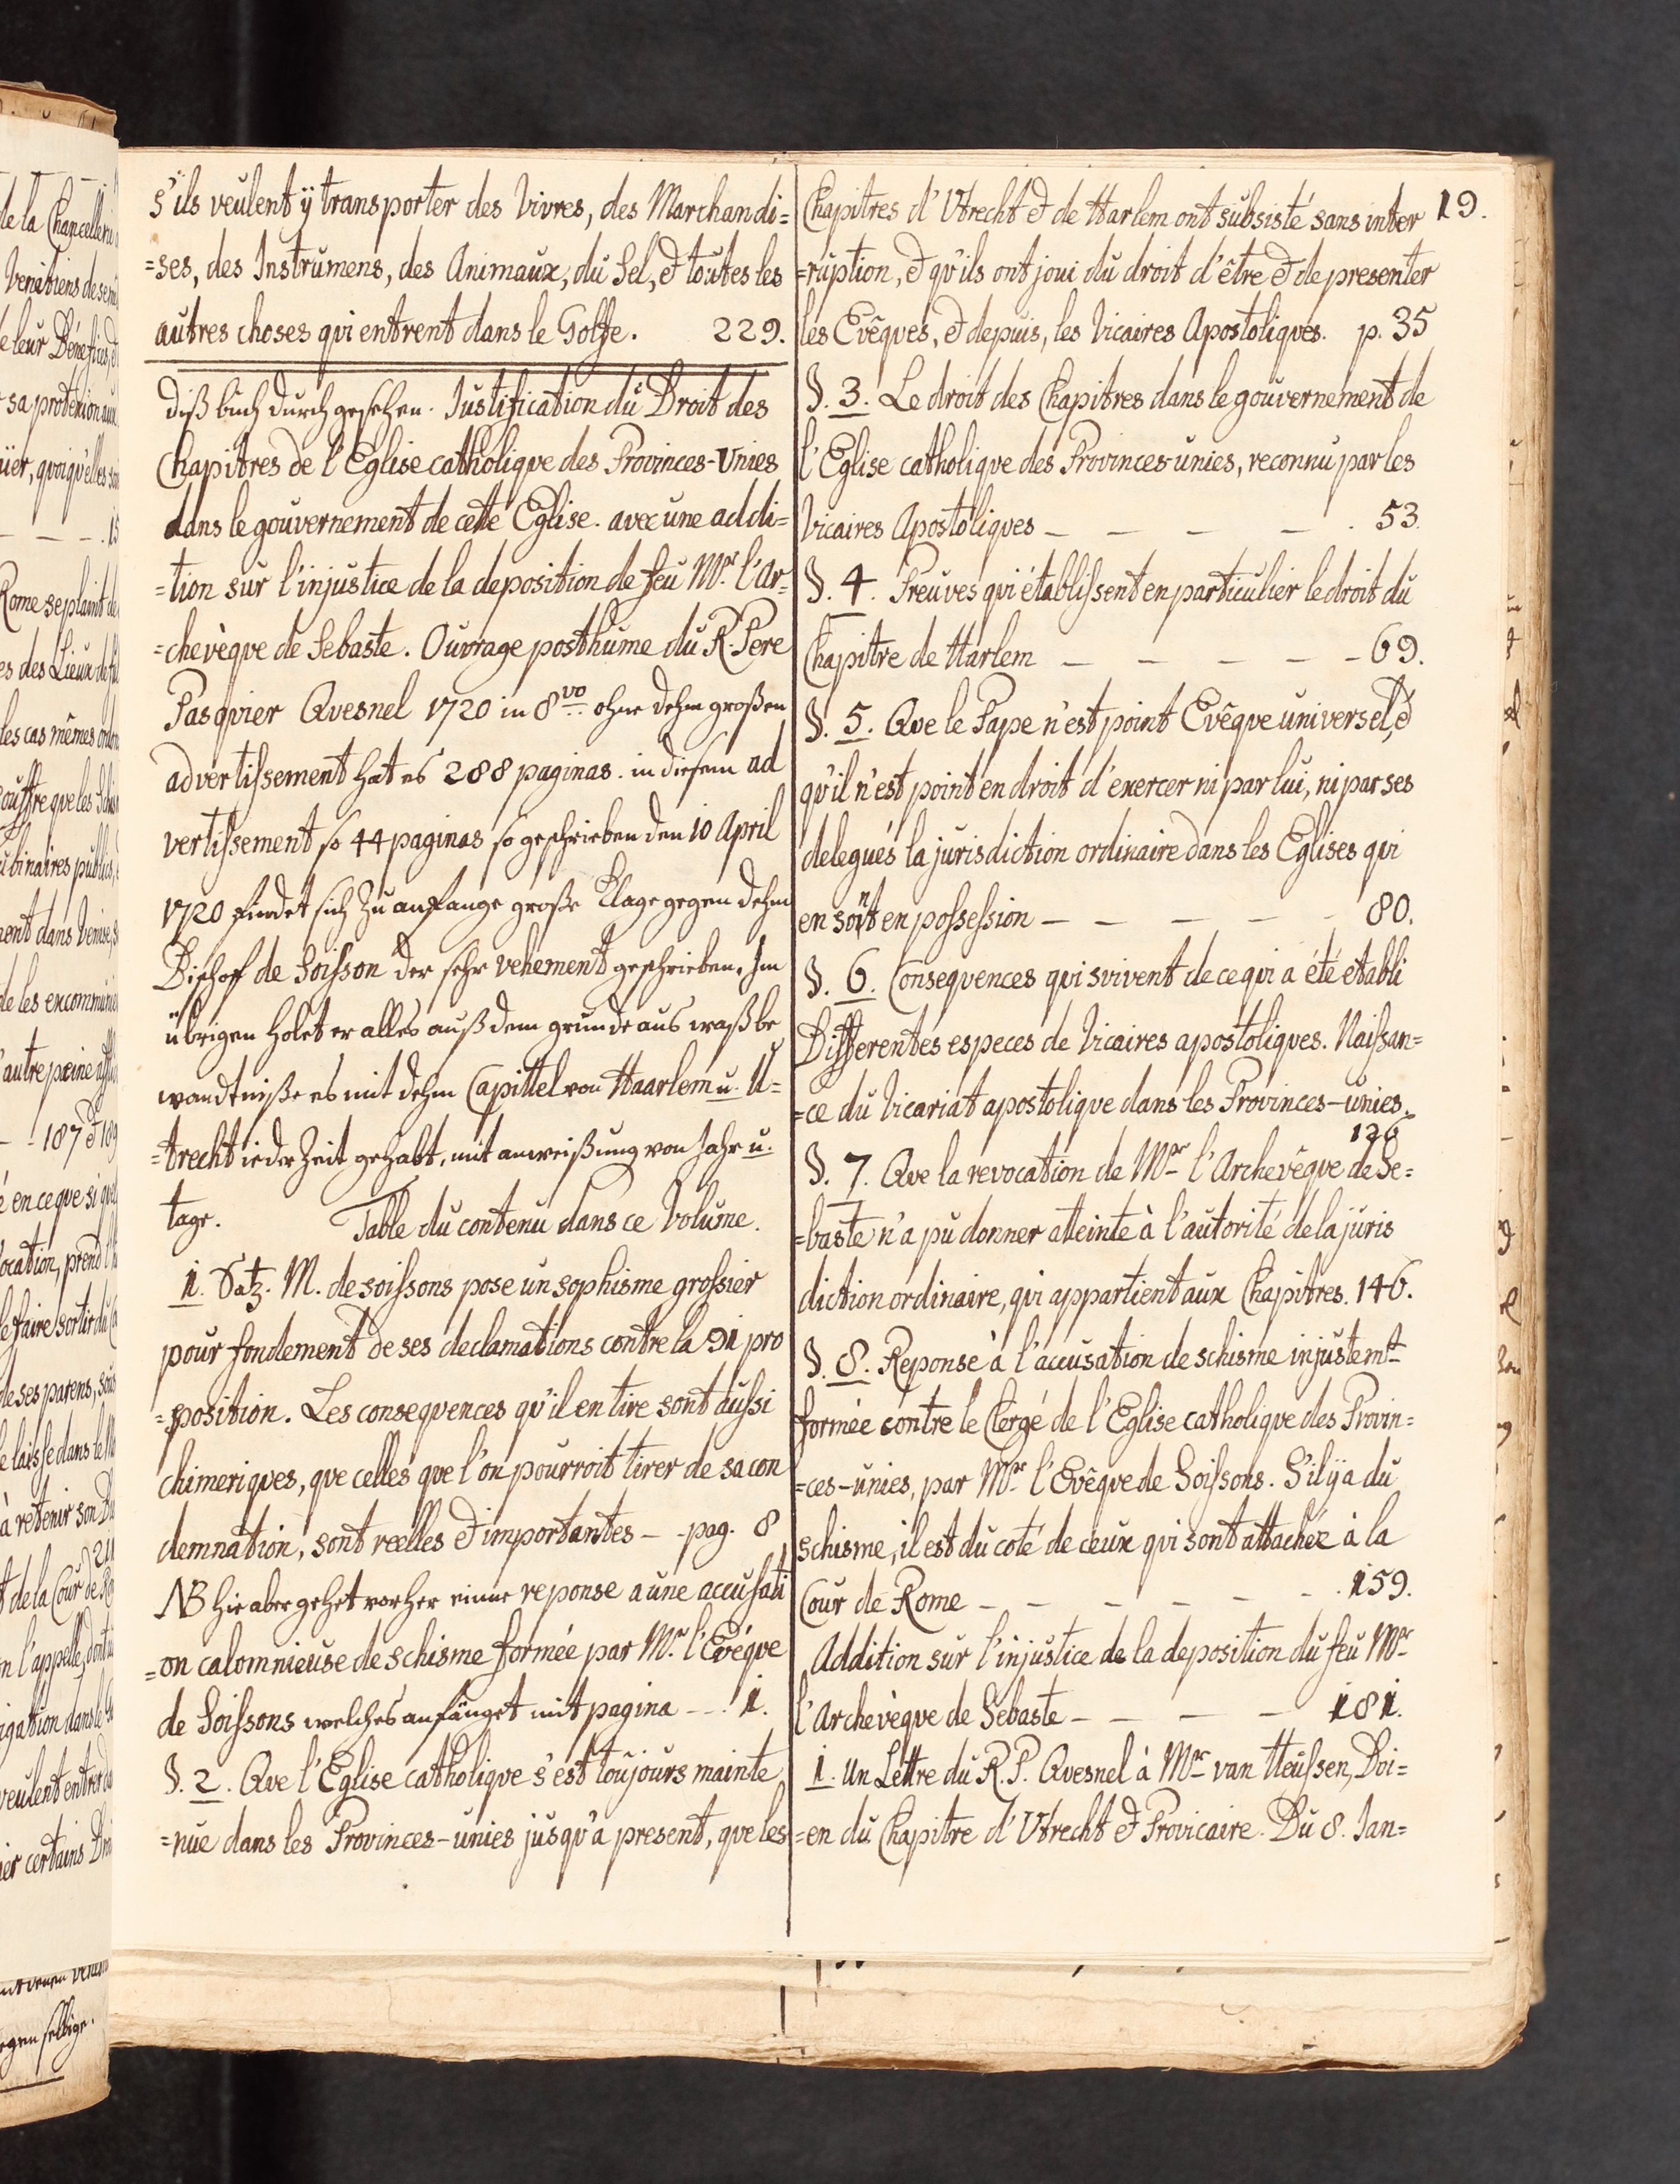 s'ils veulent ÿ transporter des Vivres, des Marchandi=
=ses, des Instrumens, des Animaux, du Sel, & toutes les
autres choses qui entrent dans le Golfe. 229.
diß buch durchgesehen. Justification du Droit des
Chapitres de l'Eglise catholique des Provinces-Unies
dans le gouvernement de cette Eglise. avec une addi=
=tion sur l'injustice de la deposition de feu Mr. l'Ar=
=chevèque de Sebaste. Ouvrage posthume du R. Pere
Pasquier Quesnel 1720 in 8vo ohne dehm großen
advertissement hat es 288 paginas. in diesem ad
vertissement so 44 paginas so geschrieben den 10 April
1720 findet sich zu anfange große Klage gegen dehm
Bischoff de Soisson der sehr vehement geschrieben. Im
übrigen holet er alles auß dem grunde aus waß be
wandtniße es mit dehm Capittel von Haarlem u. U=
=trecht ieder Zeit gehabt, mit anweißung von Jahr u.
tage. Table du contenu dans ce Volume.
1. Satz. M. de soissons pose un sophisme grossier
pour fondement de ses declamations contre la 91 pro
=position. Les consequences qu'il en tire sont aussi
chimeriques, que celles que l'on pourroit tirer de sa con
demnation, sont reelles & importantes – - pag. 8
NB hie aber gehet vorher einne reponse a une accusati
=on calomnieuse de schisme formée par Mr. l'Evéque
de Soissons welches anfänget mit pagina – - 1.
§. 2. Que l'Eglise catholique s'est toujours mainte
=nue dans les Provinces-unies jusqu'a present, que les
19.
Chapitres d'Utrecht & de Harlem ont subsisté sans inter
=ruption, & qu'ils ont joui du droit d'être & de presenter
les Evêques, & depuis, les Vicaires Apostoliques. p. 35
§. 3. Le droit des Chapitres dans le gouvernement de
l'Eglise catholique des Provinces unies, reconnu par les
Vicaires Apostoliques – – – – - 53.
§. 4. Preuves qui établissent en particulier le droit du
Chapitre de Harlem – – – – – - 69.
§. 5. Que le Pape n'est point Evêque universel, &
qu'il n'est point en droit d'exercer ni par lui, ni par ses
delegués la jurisdiction ordinaire dans les Eglises qui
en sont en possession – – – – – - 80.
§. 6. Consequences qui suivent de ce qui a été etabli
Differentes especes de Vicaires apostoliques. Naissan=
=ce du Vicariat apostolique dans les Provinces-unies.
126
§. 7. Que la revocation de Mr. l'Archevêque de Se=
=baste n'a pu donner atteinte à l'autorité de la juris
diction ordinaire, qui appartient aux Chapitres. 146.
§. 8. Reponse à l'accusation de schisme injustemt
formée contre le Clergé de l'Eglise catholique des Provin=
=ces-unies, par Mr. l'Evêque de Soissons. S'il ÿ a du
schisme, il est du coté de ceux qui sont attachéz à la
Cour de Rome – – – – – – - 159.
Addition sur l'injustice de la deposition du feu Mr.
l'Archevèque de Sebaste – – – – – 181.
1. Un Lettre du R. P. Quesnel à Mr. van Heussen, Doi=
=en du Chapitre d'Utrecht & Provicaire. Du 8. Jan=